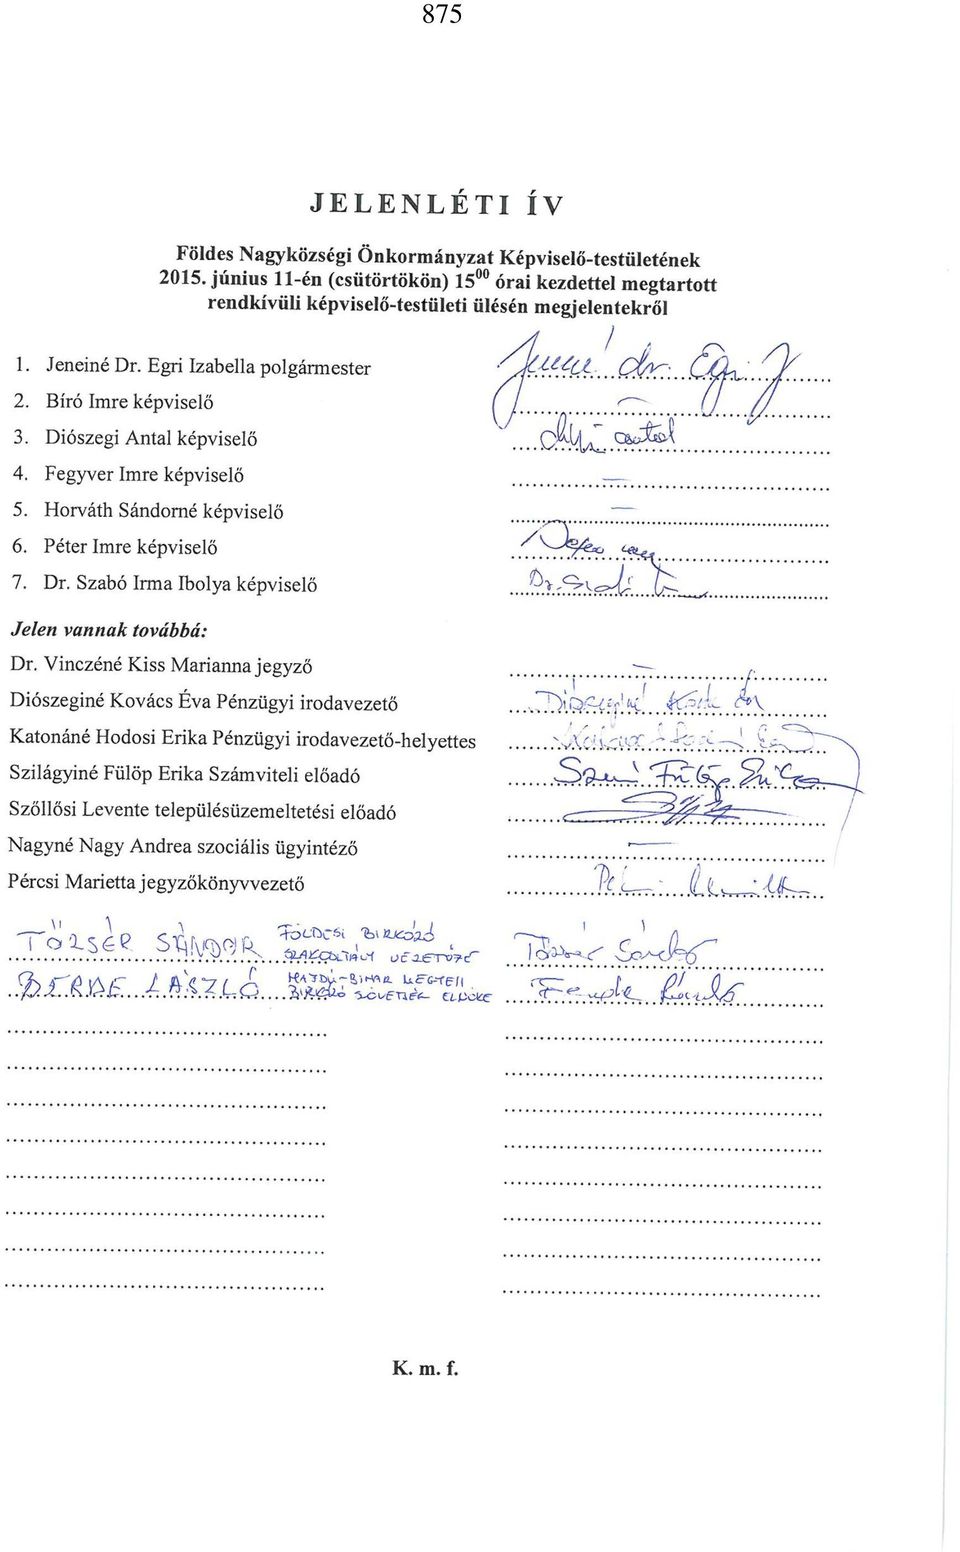 875
JELENLÉTI ÍV
Földes Nagyközségi Önkormányzat Képviselő-testületének
2015. június 11-én (csütörtökön) 15⁰⁰ órai kezdettel megtartott
rendkívüli képviselő-testületi ülésén megjelentekről
1. Jeneiné Dr. Egri Izabella polgármester Jeneiné dr. Egri I
2. Bíró Imre képviselő –
3. Diószegi Antal képviselő
4. Fegyver Imre képviselő –
5. Horváth Sándorné képviselő –
6. Péter Imre képviselő
7. Dr. Szabó Irma Ibolya képviselő Dr. Szabó I
Jelen vannak továbbá:
Dr. Vinczéné Kiss Marianna jegyző –
Diószeginé Kovács Éva Pénzügyi irodavezető Diószeginé
Katonáné Hodosi Erika Pénzügyi irodavezető-helyettes
Szilágyiné Fülöp Erika Számviteli előadó Fülöp Erika
Szőllősi Levente településüzemeltetési előadó
Nagyné Nagy Andrea szociális ügyintéző –
Pércsi Marietta jegyzőkönyvvezető
TŐZSÉR SÁNDOR FÖLDESI BIRKÓZÓ Tőzsér Sándor
SZAKOSZTÁLY VEZETŐJE
BERDE LÁSZLÓ HAJDÚ-BIHAR MEGYEI
BIRKÓZÓ SZÖVETSÉG ELNÖKE
K. m. f.